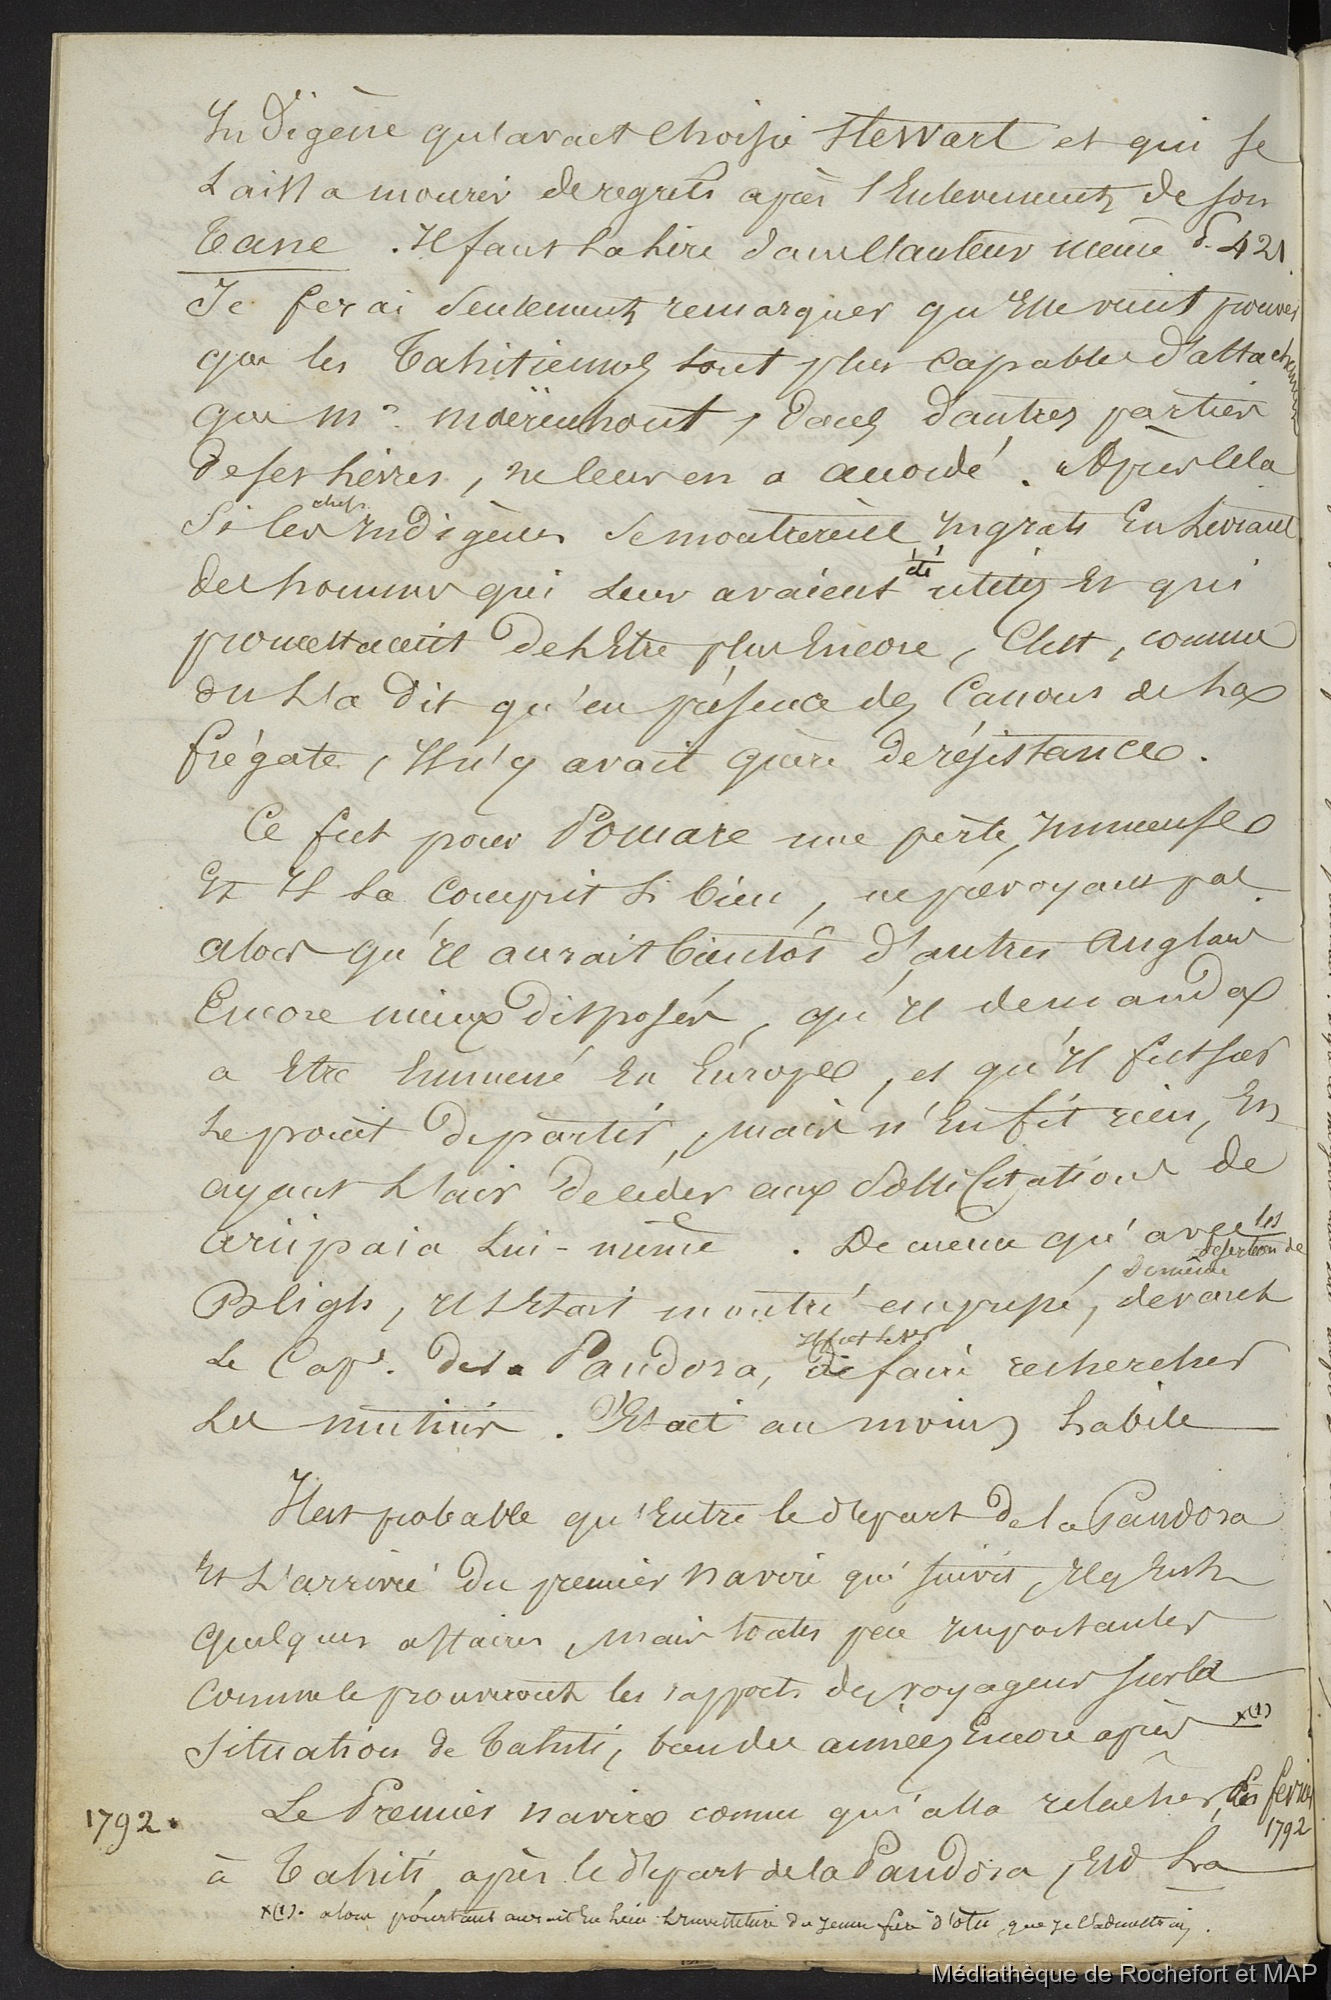 Indigène qu'avait choisie Stewart et qui se
laissa mourir de regrets après l'Enlevement de son
Tane. Il faut la lire dans l'auteur même p. 421.
Je ferai seulement remarquer qu'Elle vient prouver
que les Tahitiennes sont plus capables d'attachement
que Mr. Moërenhout, dans d'autres parties
de ses livres, ne leur en a accordé. Après cela
chefs
Si les Indigènes se montrèrent Ingrats En livrant
été
des hommes qui leur avaient utiles Et qui
promettaient de l'Etre plus Encore, C'est, comme
on l'a dit qu'en présence des Canons de la
frégate, Il n'y avait guère de résistance.
Ce fut pour Pomare une perte Immense
Et Il la comprit si bien, ne prévoyant pas
alors qu'Il aurait bientôt d'autres Anglais
Encore mieux disposés, qu'Il demanda
a Etre Emmené En Europe, et qu'Il fut sur
le point de partir, mais n'En fit rien, En
ayant l'air de céder aux Sollicitations de
Ariipaia lui-même. De meme qu'avec les
deserteurs de
De même
Bligh, Il s'Etait montré empressé, devant
Il fut
le Cap. de la Pandora, de faire rechercher
les mutins. C'Etait au moins habile
Il est probable qu'Entre le départ de la Pandora
Et l'arrivée du premier navire qui suivit, Il y Eut
quelques affaires, mais toutes peu Importantes
comme le prouveront les rapports des voyageurs sur la
situation de Tahiti, bien des années Encore après x(1)
1792. Le Premier navire connu qui alla relâcher, En fevrier
1792
à Tahiti, après le départ de la Pandora, fut la
x(1). alors pourtant aurait Eu lieu l'Investiture du jeune fils d'Otu, que je l'admettrai.